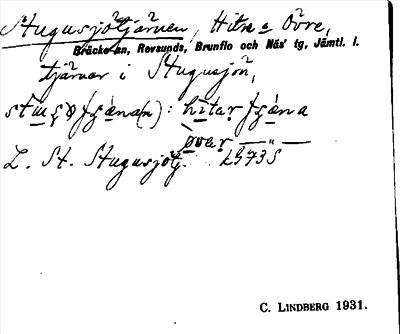 Stugusjötjärnen, Hitre o Övre,
Bräcke sn, Revsunds, Brunflo och Näs' tg, Jämtl. l.
tjärnar i Stugusjön,
hitar
övar — " —
L. St. Stugusjötj. LG 73S
C. LINDBERG 1931.